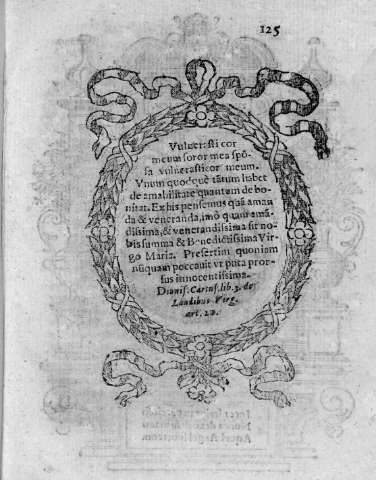 125
Vulnerasti cor
meum soror mea spõ-
sa vulnerasti cor meum.
Vnum quodquè tãtum habet
de amabilitate quantum de bo-
nitat. Ex his pensemus quã aman
da & veneranda, imò quam amã-
dissima, & venerandissima sit no-
bis summa & Benedictissima Vir-
go Maria. Presertim quoniam
nũquam peccauit vt puta pror-
sus innocentissima.
Dionis. Cartus. lib. 3. de
Laudibus Virg.
art. 20.